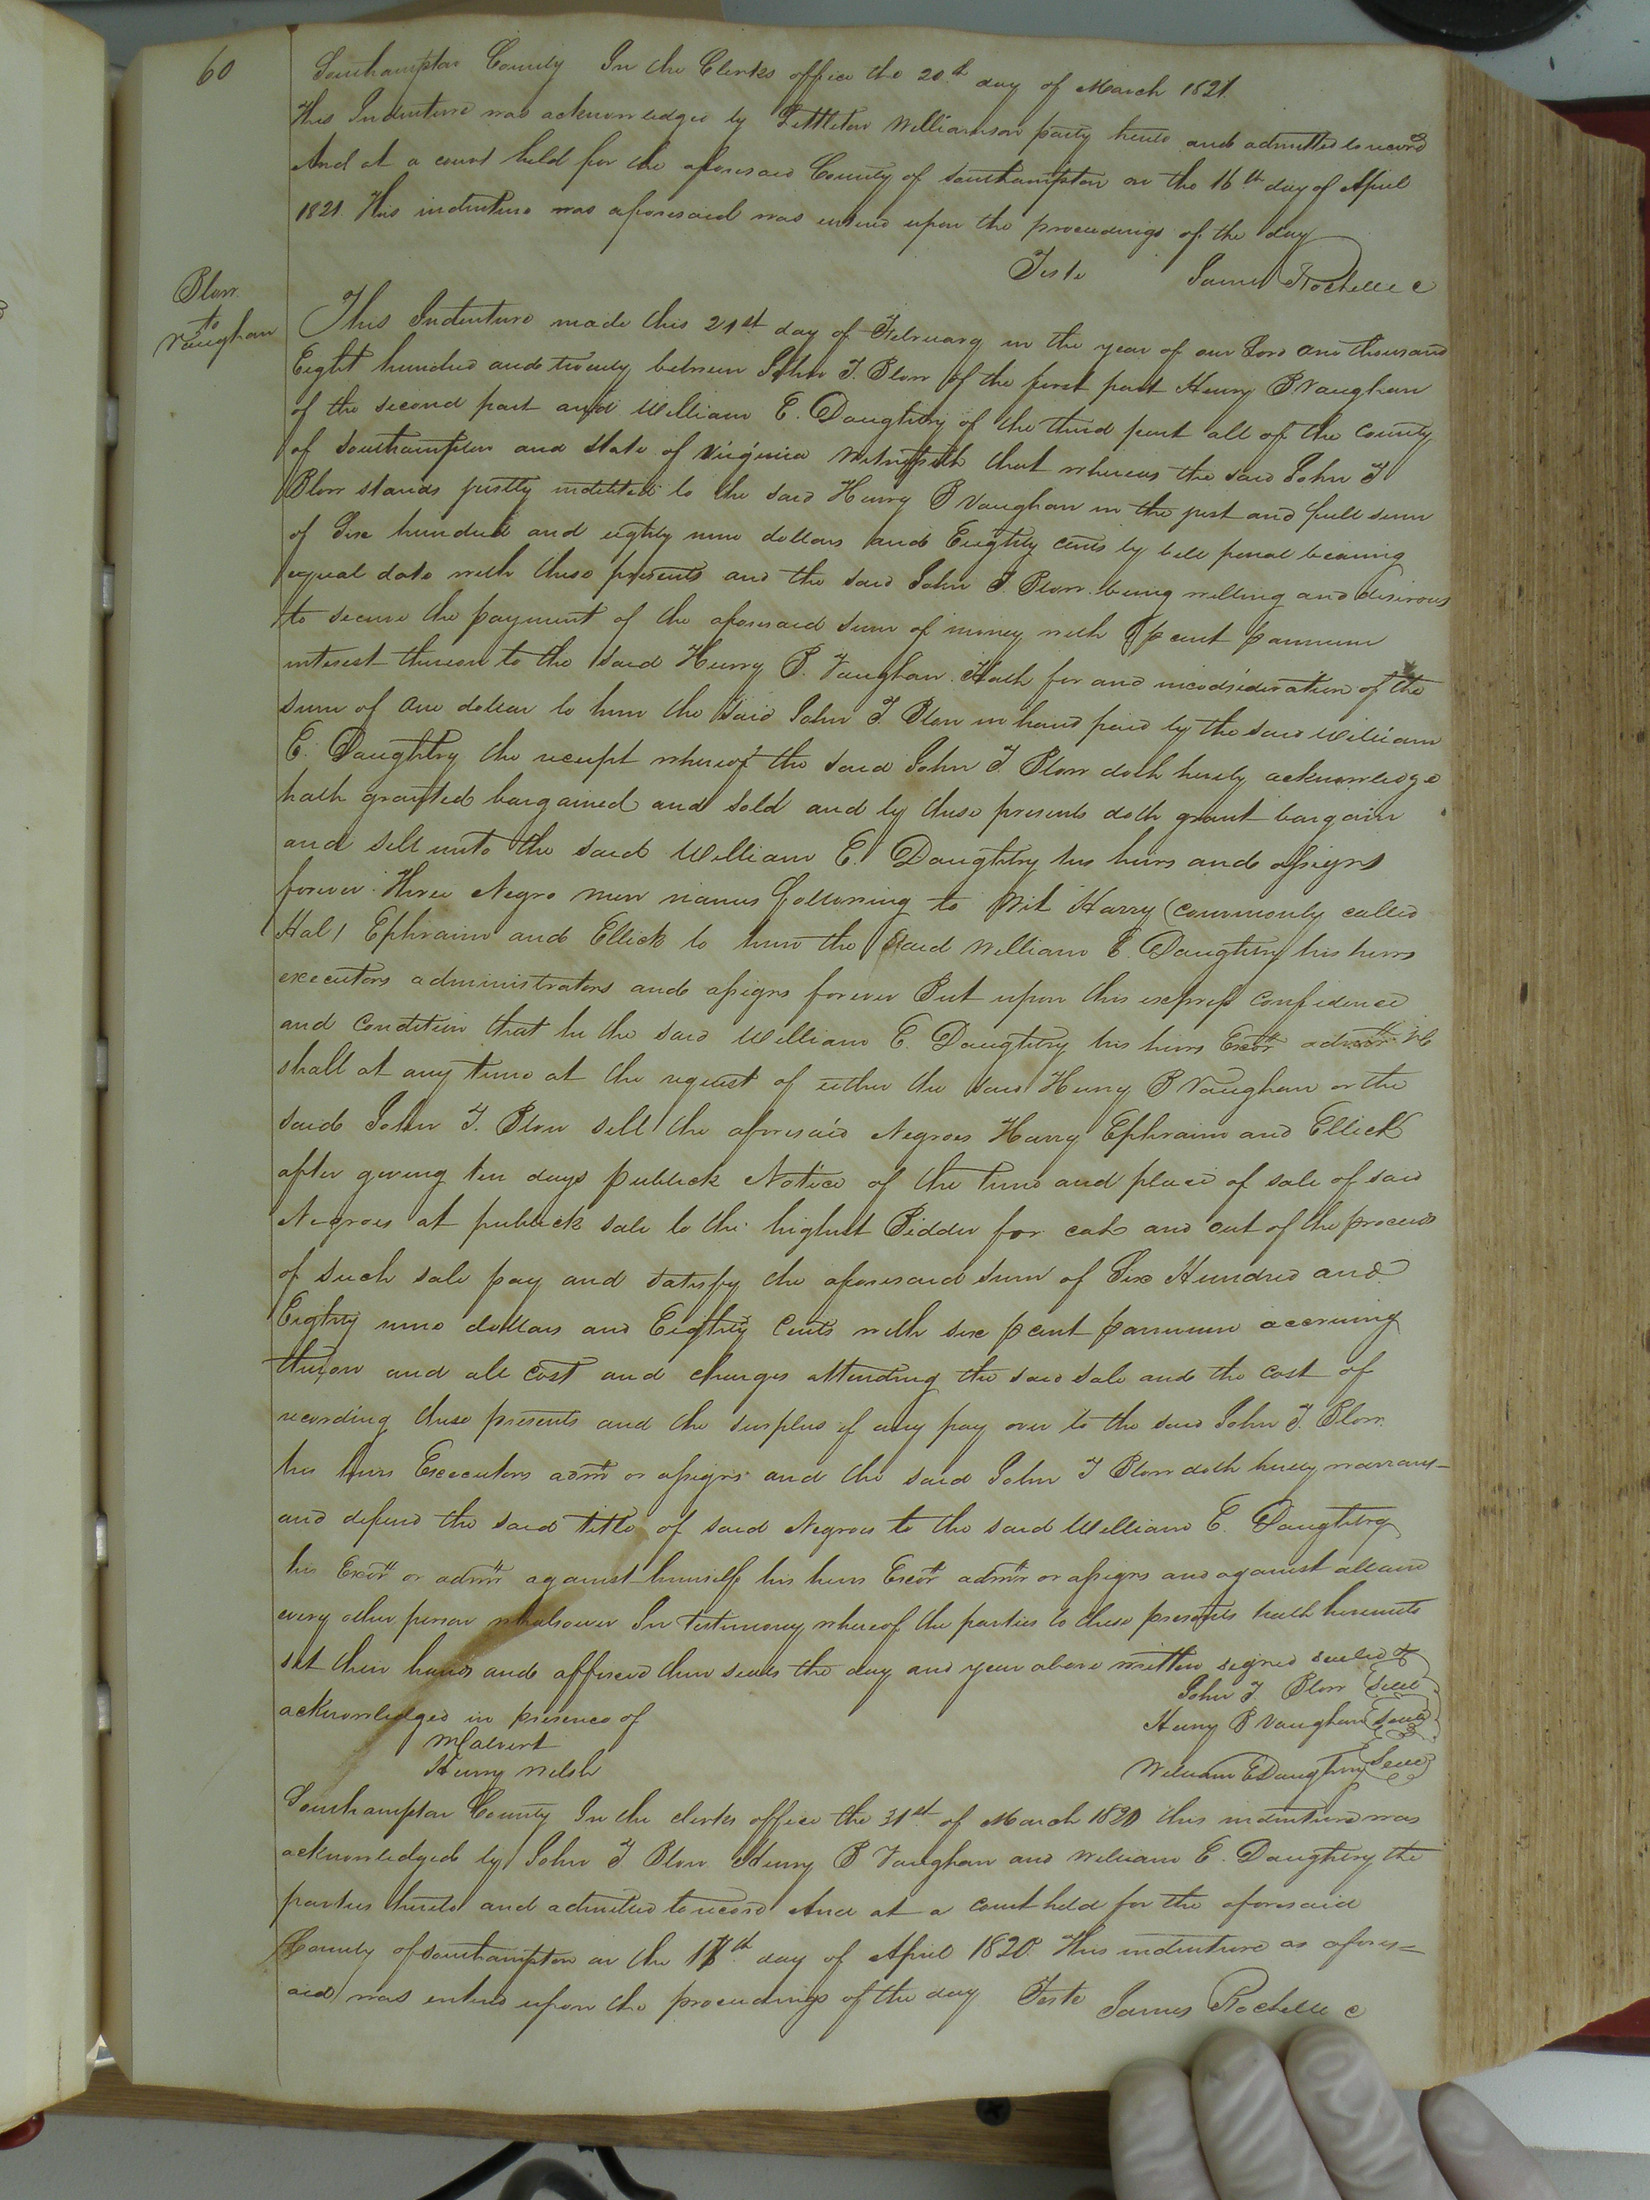 60
Southampton County In the Clerks office the 20th day of March 1821.
This Indenture was acknowledged by Littleton Williamson party hereto and admitted to record
And at a court held for the aforesaid County of Southampton on the 16th day of April
1821. This indenture was aforesaid was entered upon the proceedings of the day
Teste James Rochelle C
Blow
to
Vaughan
This Indenture made this 21st day of February in the year of our Lord one thousand
Eight hundred and twenty between John T. Blow of the first part Henry B Vaughan
of the second part and William E. Daughtry of the third part all of the County
of Southampton and State of Virginia Witnesseth that whereas the said John T
Blow stands justly indebted to the said Henry B Vaughan in the just and full sum
of Six hundred and eighty nine dollars and Eighty cents by bill penal bearing
equal date with these presents and the said John T. Blow being willing and desirous
to secure the payment of the aforesaid sum of money with 6 pcent pannum
interest thereon to the said Henry B. Vaughan. Hath for and incodsideration of the
sum of one dollar to him the said John T. Blow in hand paid by the said William
E. Daughtry the receipt whereof the said John T. Blow doth hereby acknowledge
hath granted bargained and sold and by these presents doth grant bargain
and sell unto the said William E. Daughtry his heirs and assigns
forever Three Negro men names following to Wit Harry (commonly called
Hal) Ephraim and Ellick to him the said William E. Daughtry his heirs
executors administrators and assigns forever But upon this express confidence
and condition that he the said William E. Daughtry his heirs Exors admors &c
shall at any time at the request of either the said Henry B Vaughan or the
said John T. Blow sell the aforesaid Negroes Harry Ephraim and Ellick
after giving ten days publick Notice of the time and place of sale of said
Negroes at publick sale to the highest Bidder for cah and out of the proceeds
of such sale pay and satisfy the aforesaid sum of Six Hundred and
Eighty nine dollars and Eighty Cents with six pcent pannum accruing
thereon and all cost and charges attending the said sale and the cost of
recording these presents and the surplus if any pay over to the said John T. Blow
his heirs Executors admrs or assigns and the said John T Blow doth hereby warrant
and defend the said title of said Negroes to the said William E. Daughtry
his Exors or admrs against himself his heirs Exors admrs or assigns and against all and
every other person whatsoever In testimony whereof the parties to these presents hath hereunto
set their hands and affixed their seals the day and year above written signed sealed &
acknowledged in presence of
John T Blow Seal
Henry B Vaughan Seal
M Calvert
Henry Welsh
William E Daughtry Seal
Southampton County In the clerks office the 31st of March 1820 this indenture was
acknowledged by John T Blow Henry B Vaughan and William E. Daughtry the
parties hereto and admitted to record And at a court held for the aforesaid
County of Southampton on the 17th day of April 1820. This indenture as afores=
aid was entered upon the proceedings of the day Teste James Rochelle C